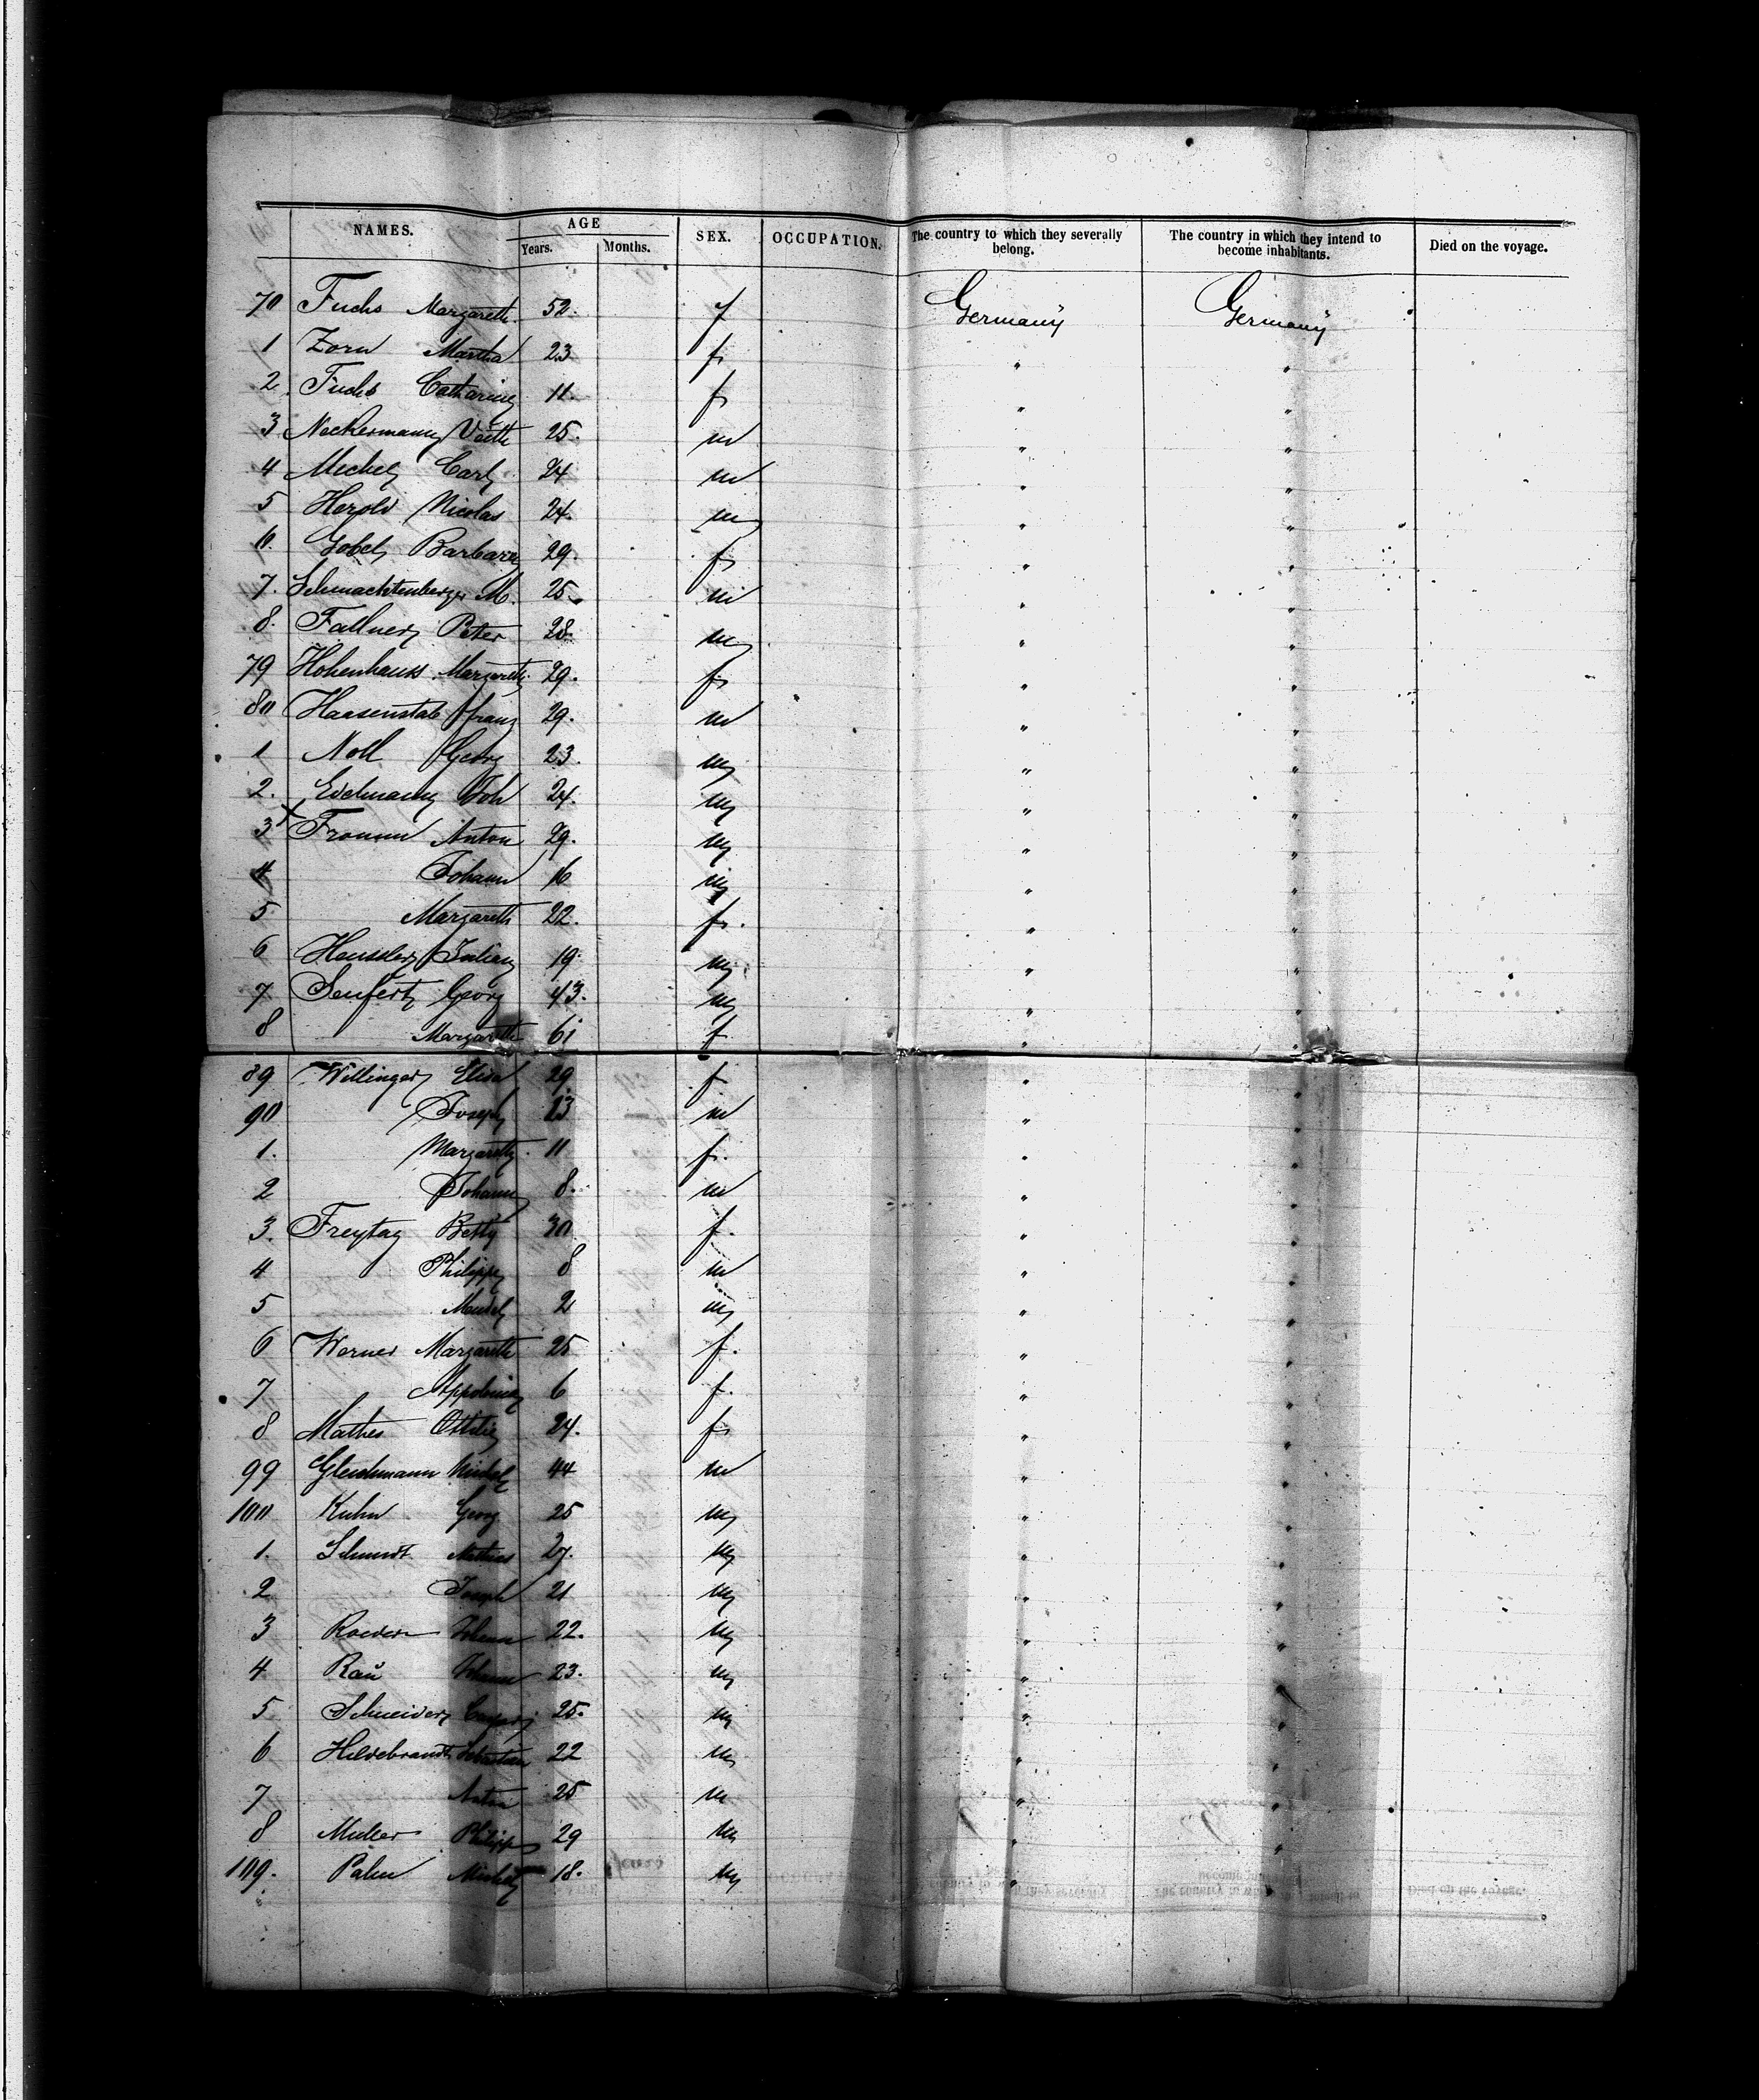 NAMES. AGE SEX. OCCUPATION. The country to which they severally belong. The country in which they intend to become inhabitants. Died on the voyage.
Years. Months.
70 Fuchs Margareth. 52. f Germany Germany
1 Zorn Martha 23 f " "
2 Fuchs Catharina 11. f " "
3 Neckermann Veith 25. m " "
4 Michel Carl 24 m " "
5 Herold Nicolas 24. m " "
6. Gobel Barbara 29. f " "
7. Schmachtenberger M. 25. m " "
8. Fallner Peter 28. m " "
79 Hohenhauss Margareth. 29. f " "
80 Haasenstab Franz 29. m " "
1 Noll Georg 23. m " "
2. Eidelmann Joh 24. m " "
3 x Fromm Anton 29. m " "
4 Johann 16 m " "
5 Margareth 22. f. " "
6 Heussler Julian 19. m " "
7 Seufert Georg 43. m " "
8 Margareth 61 f " "
89 Willinger Elise 29 f " "
90 Joseph 13 m " "
1. Margareth 11 f. " "
2 Johann 8. m " "
3. Freytag Betty 30 f. " "
4 Philipp 8 m " "
5 2 m " "
6 Werner Margareth 25 f. " "
7 Appolonia 6 f. " "
8 Mathes Ottilie 24. f " "
99 Gleichmann Michel 44 m " "
100 Kuhn Georg 25 m " "
1. Schmidt Mathias 27. m " "
2 Joseph 21 m " "
3 Roeder Johann 22. m " "
4 Rau Johann 23. m " "
5 Schneider Caspar 25. m " "
6 Hildebrandt Sebastian 22 m " "
7 Anton 25 m " "
8 Muller Philipp 29 m " "
109. Palm Michael 18. m " "